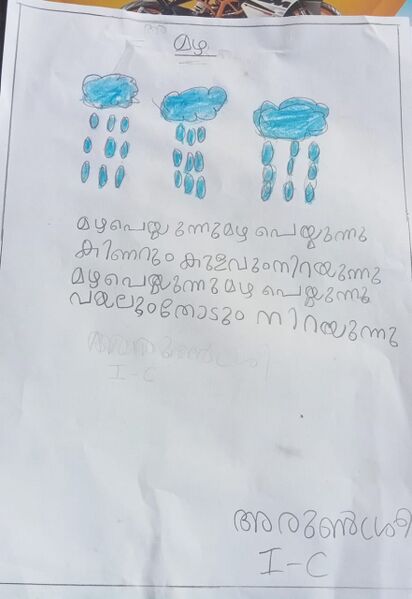 മഴ
മഴപെയ്യുന്നുമഴ പെയ്യുന്നു
കിണറും കുളവുംനിറയുന്നു
മഴപെയ്യുന്നുമഴ പെയ്യുന്നു
വയലുംതോടും നിറയുന്നു
I-C
I-C